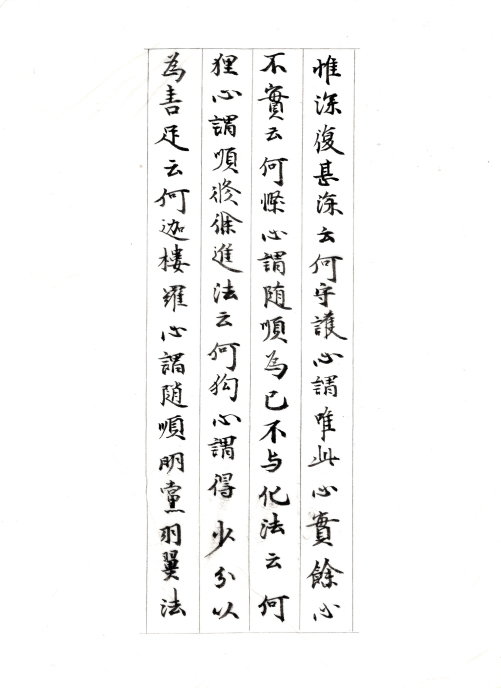 惟深復甚深云何守護心謂唯此心實餘心
不實云何慳心謂随順為己不与化法云何
狸心謂順修徐進法云何狗心謂得少分以
為善足云何迦樓羅心謂随順明黨羽翼法